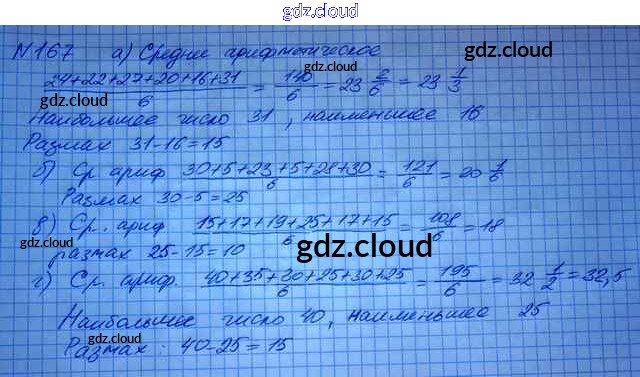 gdz.cloud
№167 а) Среднее арифметическое
gdz.cloud gdz.cloud
24+22+27+20+16+31/6 = 140/6 = 23 2/6 = 23 1/3
gdz.cloud gdz.cloud
Наибольшее число 31, наименьшее 16
Размах 31-16=15
б) Ср ариф 30+5+23+5+28+30/6 = 121/6 = 20 1/6
Размах 30-5=25
в) Ср. ариф 15+17+19+25+17+15/6 = 108/6 = 18
размах 25-15=10
gdz.cloud
г) Ср. ариф. 40+35+30+25+30+25/6 = 195/6 = 32 1/2 = 32,5
Наибольшее число 40, наименьшее 25
Размах: 40-25=15